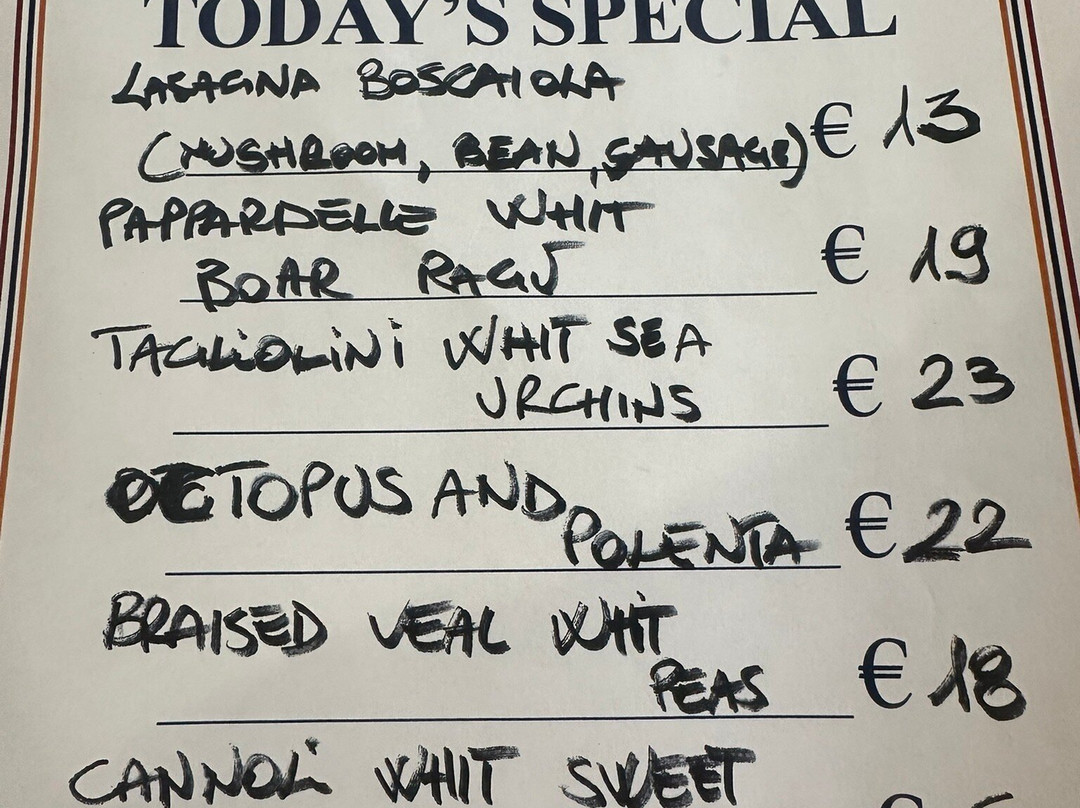 TODAY'S SPECIAL
LASAGNA BOSCAIOLA
(MUSHROOM, BEAN, SAUSAGE) € 13
PAPPARDELLE WHIT
BOAR RAGÙ € 19
TAGLIOLINI WHIT SEA
URCHINS € 23
OCTOPUS AND
POLENTA € 22
BRAISED VEAL WHIT
PEAS € 18
CANNOLI WHIT SWEET